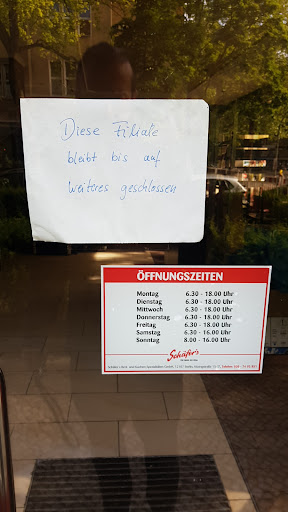 Diese Filiale
bleibt bis auf
weiteres geschlossen
ÖFFNUNGSZEITEN
Montag 6.30 - 18.00 Uhr
Dienstag 6.30 - 18.00 Uhr
Mittwoch 6.30 - 18.00 Uhr
Donnerstag 6.30 - 18.00 Uhr
Freitag 6.30 - 18.00 Uhr
Samstag 6.30 - 16.00 Uhr
Sonntag 8.00 - 16.00 Uhr
Schäfer's